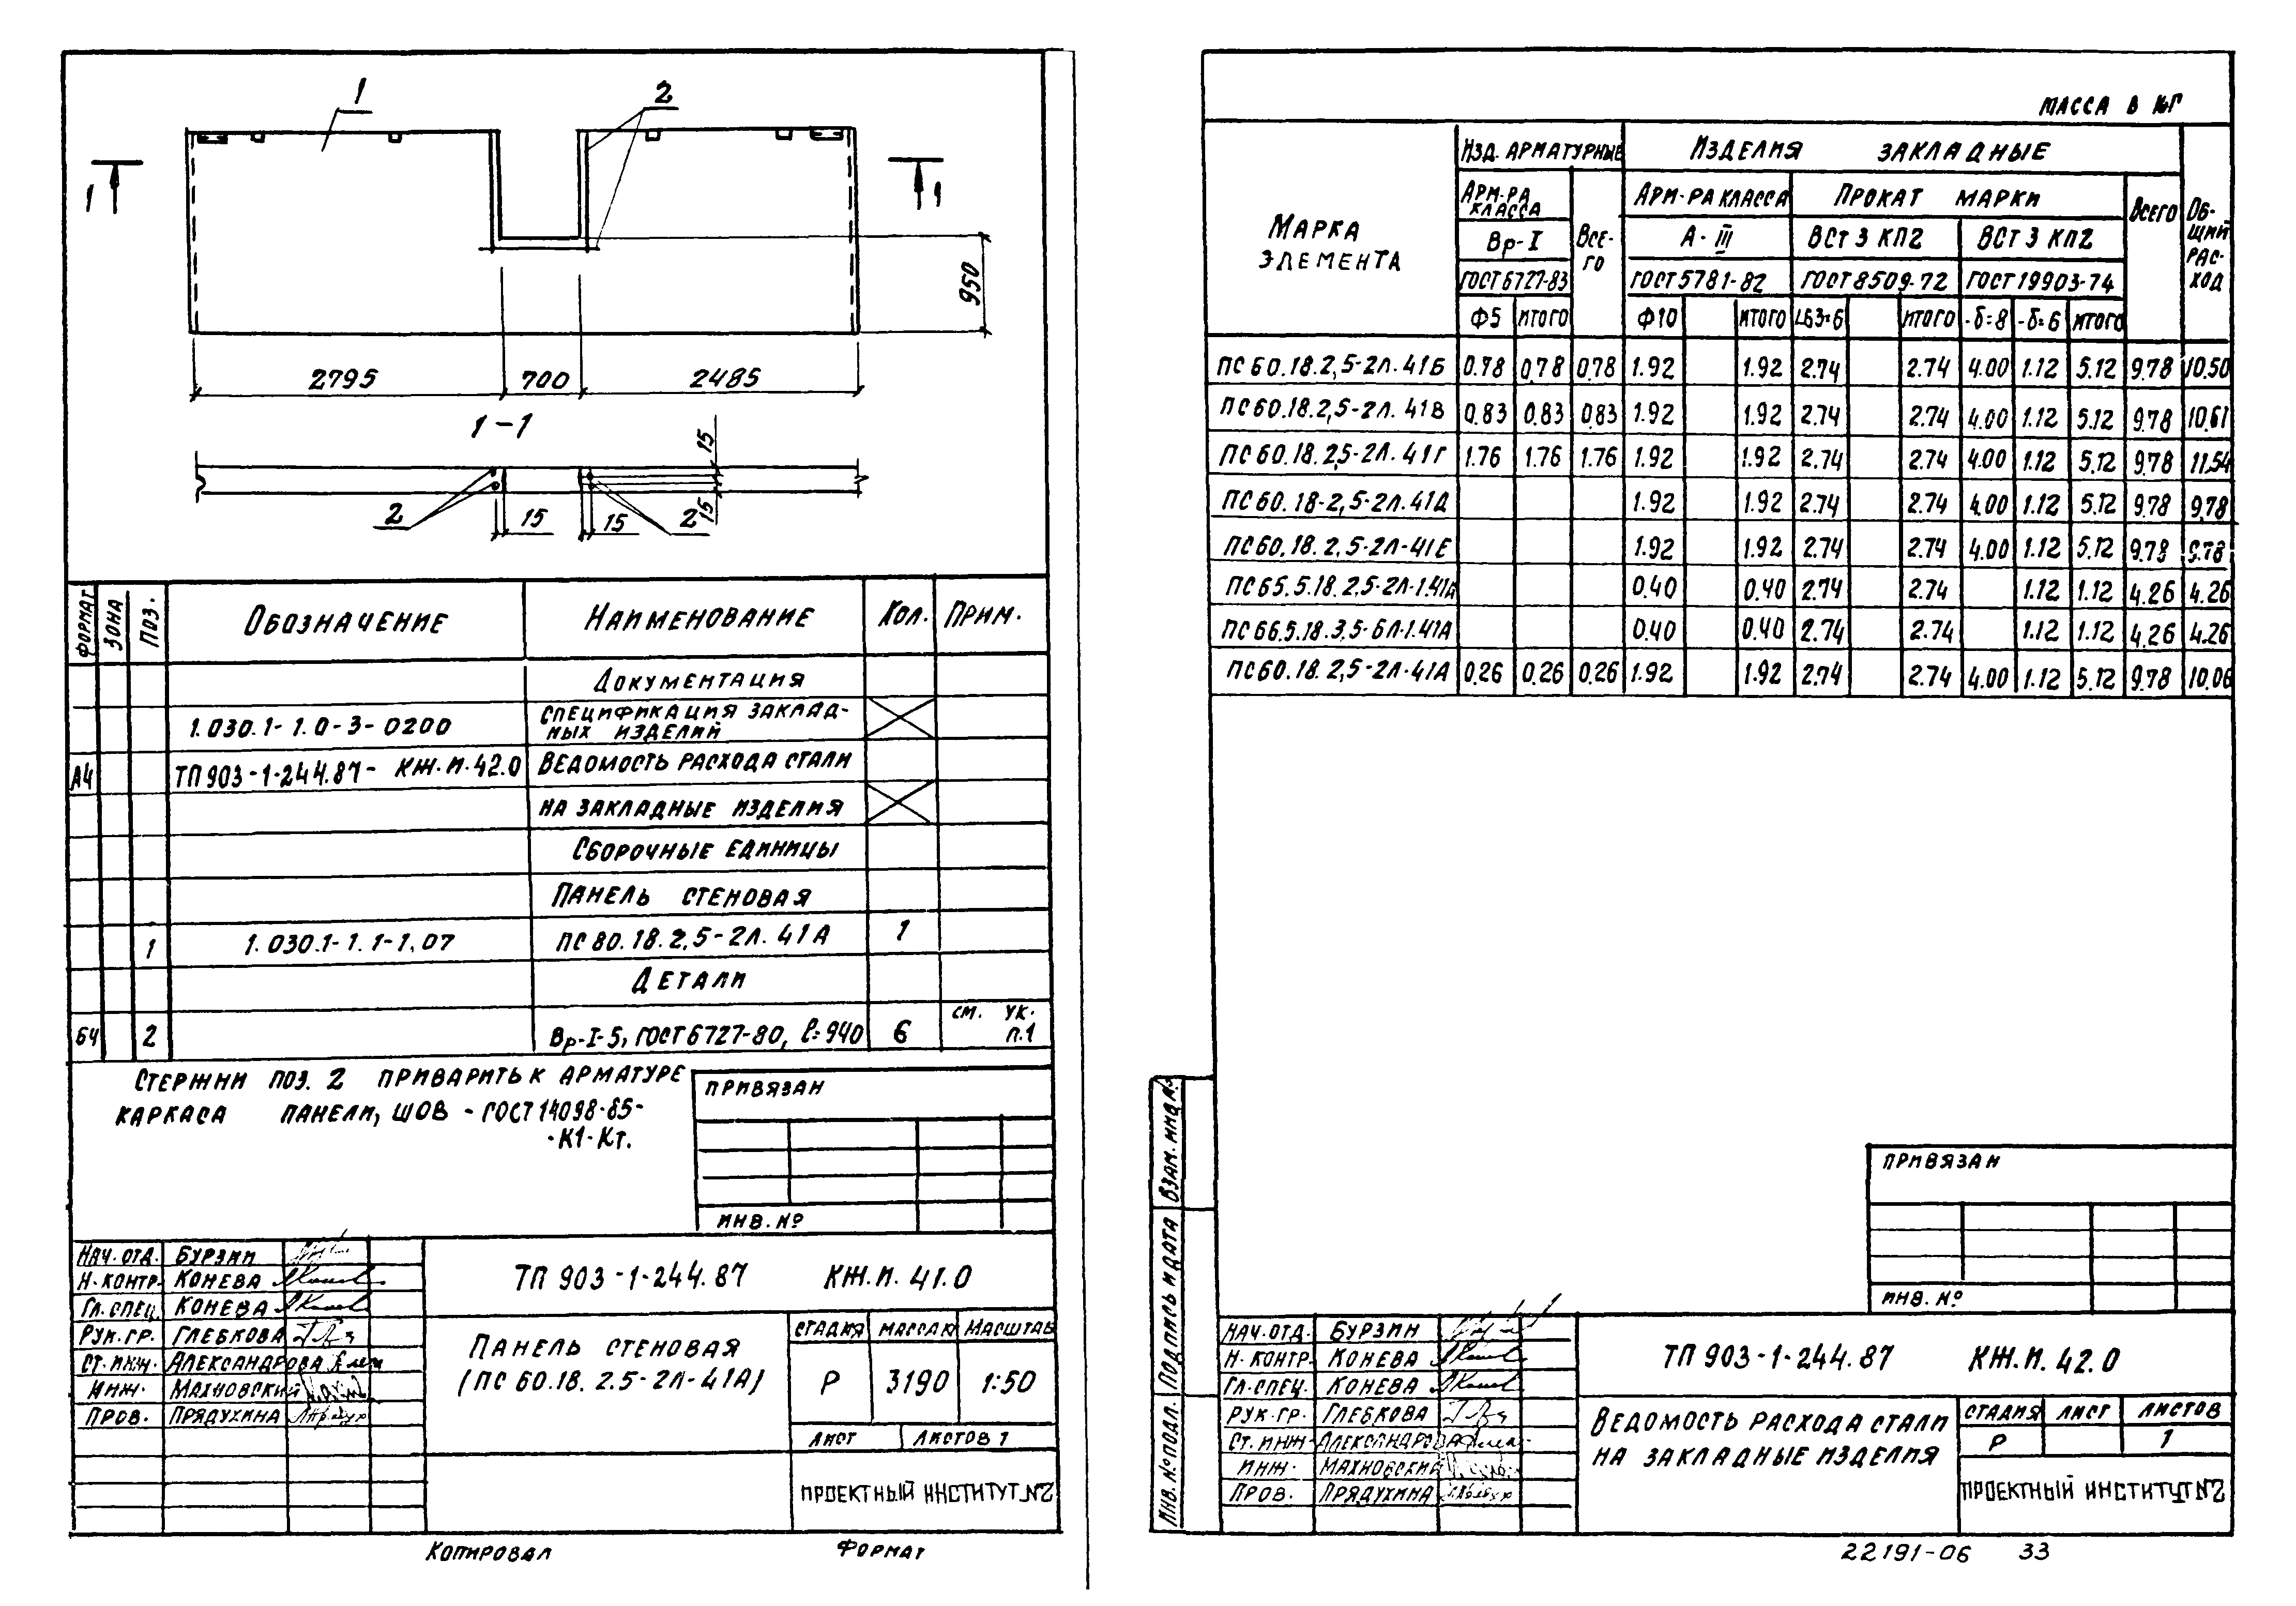 1
2
1
1
950
2795
700
2485
1-1
15
2
15
15
2
15
ФОРМАТ
ЗОНА
ПОЗ.
ОБОЗНАЧЕНИЕ
НАИМЕНОВАНИЕ
КОЛ.
ПРИМ.
ДОКУМЕНТАЦИЯ
1.030.1-1.0-3-0200
СПЕЦИФИКАЦИЯ ЗАКЛАД-
НЫХ ИЗДЕЛИЙ
А4
ТП 903-1-244.87- КЖ.И.42.0
ВЕДОМОСТЬ РАСХОДА СТАЛИ
НА ЗАКЛАДНЫЕ ИЗДЕЛИЯ
СБОРОЧНЫЕ ЕДИНИЦЫ
ПАНЕЛЬ СТЕНОВАЯ
1
1.030.1-1.1-1,07
ПС 80.18.2,5-2Л.41А
1
ДЕТАЛИ
БЧ
2
Вр-I-5, ГОСТ 6727-80, ℓ=940
6
СМ. УК.
П.1
СТЕРЖНИ ПОЗ. 2 ПРИВАРИТЬ К АРМАТУРЕ
КАРКАСА ПАНЕЛИ, ШОВ - ГОСТ 14098-85-
-К1-Кт.
ПРИВЯЗАН
ИНВ. №
НАЧ.ОТД. БУРЗИН
Н.КОНТР. КОНЕВА
ГЛ.СПЕЦ. КОНЕВА
РУК.ГР. ГЛЕБКОВА
СТ.ИНЖ. АЛЕКСАНДРОВА
ИНЖ. МАХНОВСКИЙ
ПРОВ. ПРЯДУХИНА
ТП 903-1-244.87 КЖ.И.41.0
ПАНЕЛЬ СТЕНОВАЯ
(ПС 60.18.2.5-2Л-41А)
СТАДИЯ МАССА КГ МАСШТАБ
Р 3190 1:50
ЛИСТ ЛИСТОВ 1
ПРОЕКТНЫЙ ИНСТИТУТ №2
КОПИРОВАЛ ФОРМАТ
МАССА В КГ
МАРКА
ЭЛЕМЕНТА
ИЗД. АРМАТУРНЫЕ
ИЗДЕЛИЯ ЗАКЛАДНЫЕ
ОБ-
ЩИЙ
РАС-
ХОД
АРМ-РА
КЛАССА
ВСЕ-
ГО
АРМ-РА КЛАССА
ПРОКАТ МАРКИ
ВСЕГО
Вр-I
А-III
ВСт 3 КП2
ВСт 3 КП2
ГОСТ 6727-83
ГОСТ 5781-82
ГОСТ 8509-72
ГОСТ 19903-74
Ф5 ИТОГО Ф10 ИТОГО L63=6 ИТОГО -δ=8 -δ=6 ИТОГО
ПС 60.18.2,5-2Л.41Б 0.78 0,78 0,78 1.92 1.92 2.74 2.74 4.00 1.12 5.12 9.78 10.50
ПС 60.18.2,5-2Л.41В 0.83 0.83 0.83 1.92 1.92 2.74 2.74 4.00 1.12 5.12 9.78 10.61
ПС 60.18.2,5-2Л.41Г 1.76 1.76 1.76 1.92 1.92 2.74 2.74 4.00 1.12 5.12 9.78 11.54
ПС 60.18-2,5-2Л.41Д 1.92 1.92 2.74 2.74 4.00 1.12 5.12 9.78 9.78
ПС 60.18.2,5-2Л-41Е 1.92 1.92 2.74 2.74 4.00 1.12 5.12 9.78 9.78
ПС 65.5.18.2.5-2Л-1.41А 0.40 0.40 2.74 2.74 1.12 1.12 4.26 4.26
ПС 66.5.18.3,5-6Л-1.41А 0.40 0.40 2.74 2.74 1.12 1.12 4.26 4.26
ПС 60.18.2,5-2Л-41А 0.26 0.26 0.26 1.92 1.92 2.74 2.74 4.00 1.12 5.12 9.78 10.06
ВЗАМ. ИНВ.№
ПОДПИСЬ И ДАТА
ИНВ.№ ПОДЛ.
ПРИВЯЗАН
ИНВ. №
НАЧ.ОТД. БУРЗИН
Н.КОНТР. КОНЕВА
ГЛ.СПЕЦ. КОНЕВА
РУК.ГР. ГЛЕБКОВА
СТ.ИНЖ. АЛЕКСАНДРОВА
ИНЖ. МАХНОВСКИЙ
ПРОВ. ПРЯДУХИНА
ТП 903-1-244.87 КЖ.И.42.0
ВЕДОМОСТЬ РАСХОДА СТАЛИ
НА ЗАКЛАДНЫЕ ИЗДЕЛИЯ
СТАДИЯ ЛИСТ ЛИСТОВ
Р 1
ПРОЕКТНЫЙ ИНСТИТУТ №2
22191-06 33